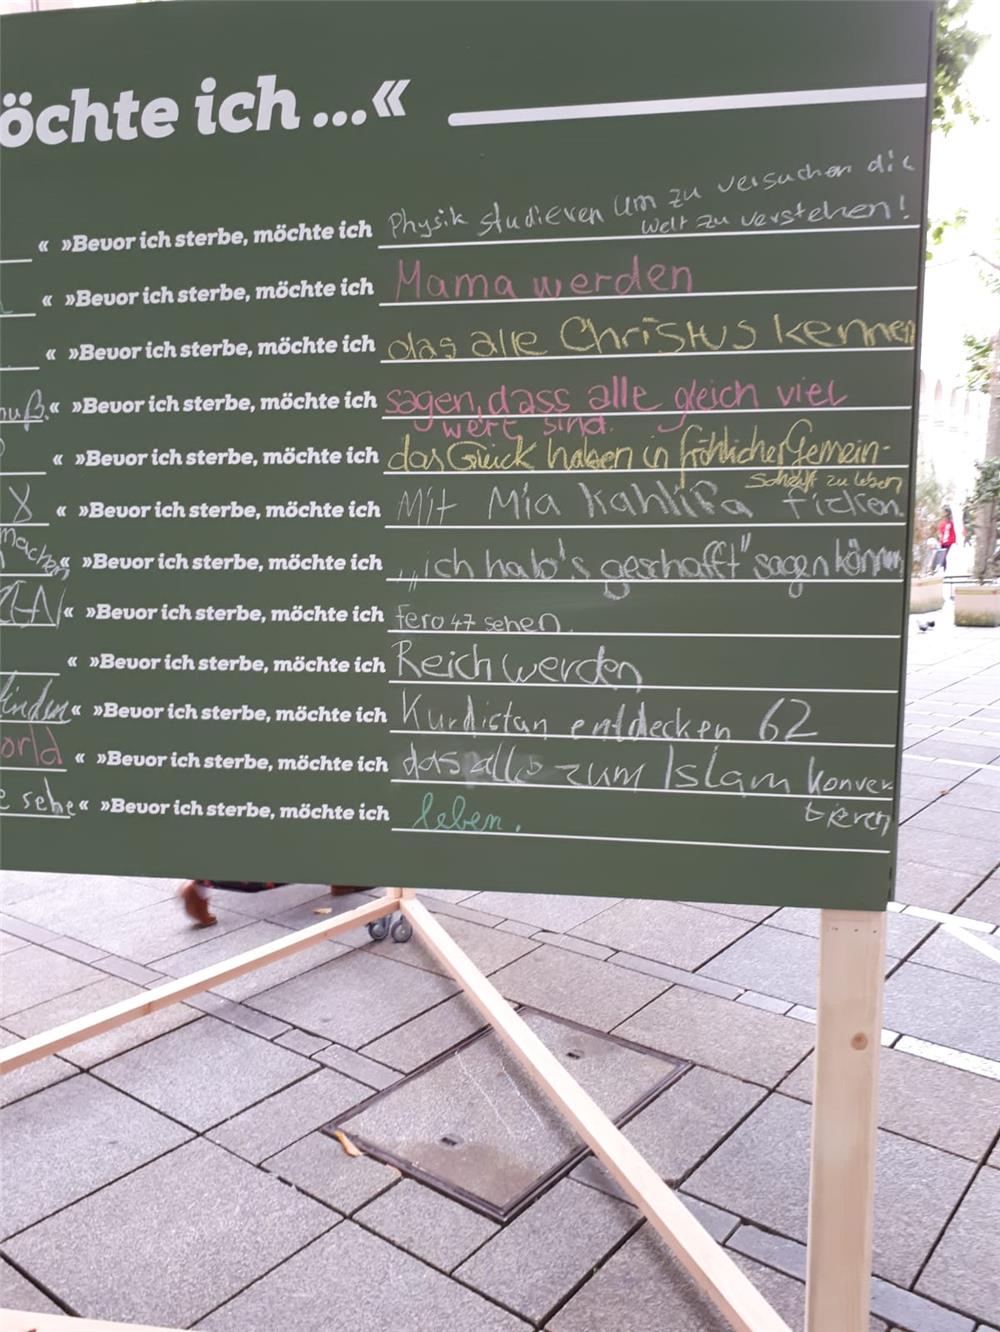 öchte ich ...«
« »Bevor ich sterbe, möchte ich Physik studieren um zu versuchen die
Welt zu verstehen!
« »Bevor ich sterbe, möchte ich Mama werden
« »Bevor ich sterbe, möchte ich das alle Christus kennen
uß.« »Bevor ich sterbe, möchte ich sagen, dass alle gleich viel
wert sind.
« »Bevor ich sterbe, möchte ich das Glück haben in fröhlicher Gemein-
schaft zu leben
« »Bevor ich sterbe, möchte ich Mit Mia Kahlifa ficken
machen« »Bevor ich sterbe, möchte ich „ich hab's geschafft" sagn könn
« »Bevor ich sterbe, möchte ich fero47 sehen.
« »Bevor ich sterbe, möchte ich Reich werden
finden« »Bevor ich sterbe, möchte ich Kurdistan entdecken 62
orld « »Bevor ich sterbe, möchte ich das alle zum Islam konver
tieren
e sehe« »Bevor ich sterbe, möchte ich leben.